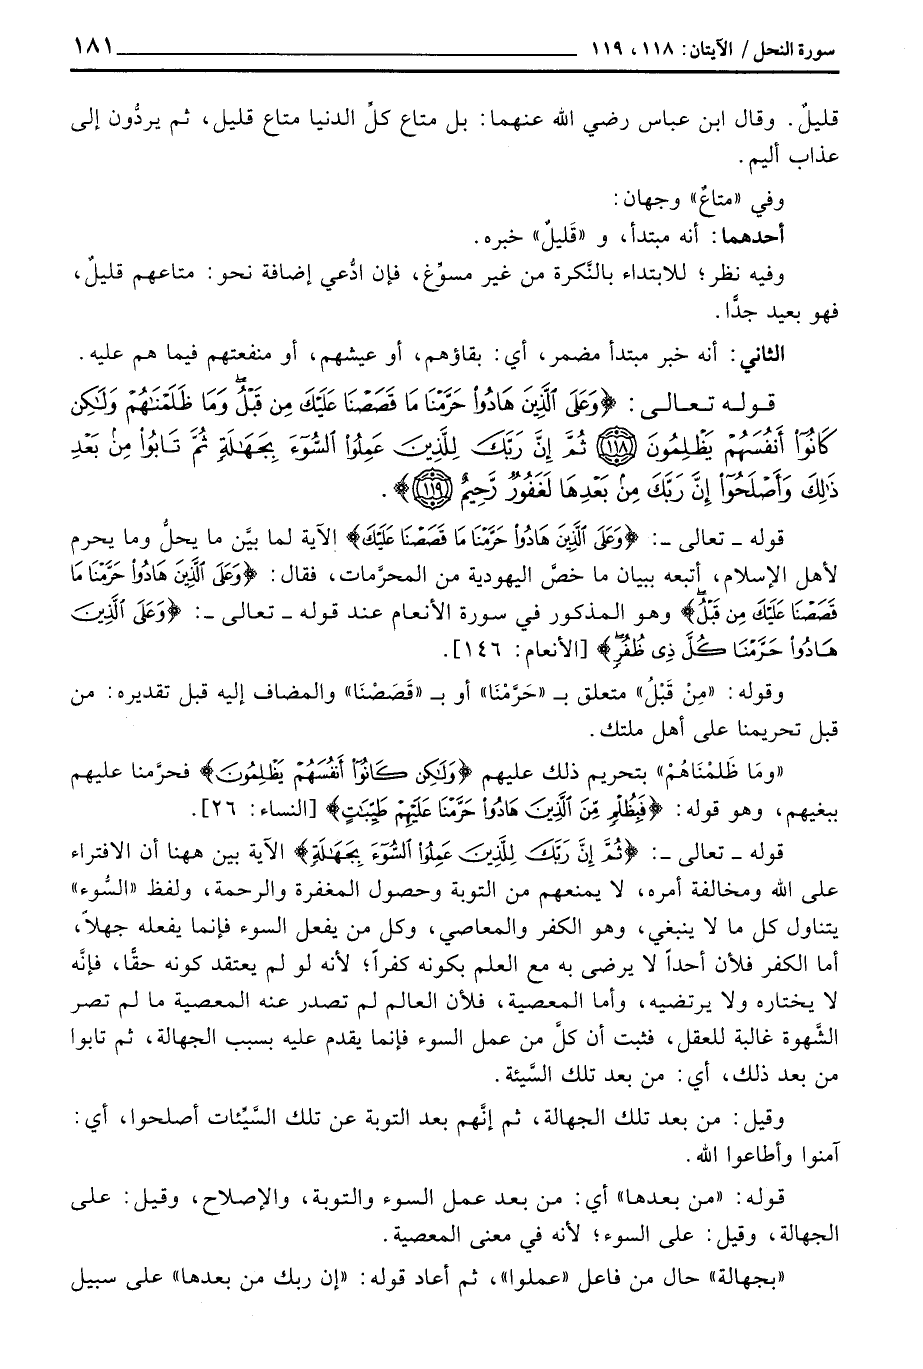 سورة النحل / الآيتان: ١١٨، ١١٩ ١٨١
قليلٌ. وقال ابن عباس رضي الله عنهما: بل متاع كلِّ الدنيا متاع قليل، ثم يردُّون إلى
عذاب أليم.
وفي «متاعٌ» وجهان:
أحدهما: أنه مبتدأ، و «قَليلٌ» خبره.
وفيه نظر؛ للابتداء بالنَّكرة من غير مسوِّغ، فإن ادُّعي إضافة نحو: متاعهم قليلٌ،
فهو بعيد جدًّا.
الثاني: أنه خبر مبتدأ مضمر، أي: بقاؤهم، أو عيشهم، أو منفعتهم فيما هم عليه.
قوله تعالى: ﴿وَعَلَى ٱلَّذِينَ هَادُواْ حَرَّمْنَا مَا قَصَصْنَا عَلَيْكَ مِن قَبْلُۖ وَمَا ظَلَمْنَٰهُمْ وَلَٰكِن
كَانُوٓاْ أَنفُسَهُمْ يَظْلِمُونَ ﴿١١٨﴾ ثُمَّ إِنَّ رَبَّكَ لِلَّذِينَ عَمِلُواْ ٱلسُّوٓءَ بِجَهَٰلَةٍ ثُمَّ تَابُواْ مِنۢ بَعْدِ
ذَٰلِكَ وَأَصْلَحُوٓاْ إِنَّ رَبَّكَ مِنۢ بَعْدِهَا لَغَفُورٌ رَّحِيمٌ ﴿١١٩﴾﴾.
قوله ـ تعالى ـ: ﴿وَعَلَى ٱلَّذِينَ هَادُواْ حَرَّمْنَا مَا قَصَصْنَا عَلَيْكَ﴾ الآية لما بيَّن ما يحلُّ وما يحرم
لأهل الإسلام، أتبعه ببيان ما خصَّ اليهودية من المحرَّمات، فقال: ﴿وَعَلَى ٱلَّذِينَ هَادُواْ حَرَّمْنَا مَا
قَصَصْنَا عَلَيْكَ مِن قَبْلُۖ﴾ وهو المذكور في سورة الأنعام عند قوله ـ تعالى ـ: ﴿وَعَلَى ٱلَّذِينَ
هَادُواْ حَرَّمْنَا كُلَّ ذِى ظُفُرٍۖ﴾ [الأنعام: ١٤٦].
وقوله: «مِنْ قَبْلُ» متعلق بـ «حَرَّمْنَا» أو بـ «قَصَصْنَا» والمضاف إليه قبل تقديره: من
قبل تحريمنا على أهل ملتك.
«ومَا ظَلَمْنَاهُمْ» بتحريم ذلك عليهم ﴿وَلَٰكِن كَانُوٓاْ أَنفُسَهُمْ يَظْلِمُونَ﴾ فحرَّمنا عليهم
ببغيهم، وهو قوله: ﴿فَبِظُلْمٍ مِّنَ ٱلَّذِينَ هَادُواْ حَرَّمْنَا عَلَيْهِمْ طَيِّبَٰتٍ﴾ [النساء: ٢٦].
قوله ـ تعالى ـ: ﴿ثُمَّ إِنَّ رَبَّكَ لِلَّذِينَ عَمِلُواْ ٱلسُّوٓءَ بِجَهَٰلَةٍ﴾ الآية بين ههنا أن الافتراء
على الله ومخالفة أمره، لا يمنعهم من التوبة وحصول المغفرة والرحمة، ولفظ «السُّوء»
يتناول كل ما لا ينبغي، وهو الكفر والمعاصي، وكل من يفعل السوء فإنما يفعله جهلاً،
أما الكفر فلأن أحداً لا يرضى به مع العلم بكونه كفراً؛ لأنه لو لم يعتقد كونه حقًّا، فإنَّه
لا يختاره ولا يرتضيه، وأما المعصية، فلأن العالم لم تصدر عنه المعصية ما لم تصر
الشَّهوة غالبة للعقل، فثبت أن كلَّ من عمل السوء فإنما يقدم عليه بسبب الجهالة، ثم تابوا
من بعد ذلك، أي: من بعد تلك السَّيئة.
وقيل: من بعد تلك الجهالة، ثم إنَّهم بعد التوبة عن تلك السَّيِّئات أصلحوا، أي:
آمنوا وأطاعوا الله.
قوله: «من بعدها» أي: من بعد عمل السوء والتوبة، والإصلاح، وقيل: على
الجهالة، وقيل: على السوء؛ لأنه في معنى المعصية.
«بجهالة» حال من فاعل «عملوا»، ثم أعاد قوله: «إن ربك من بعدها» على سبيل